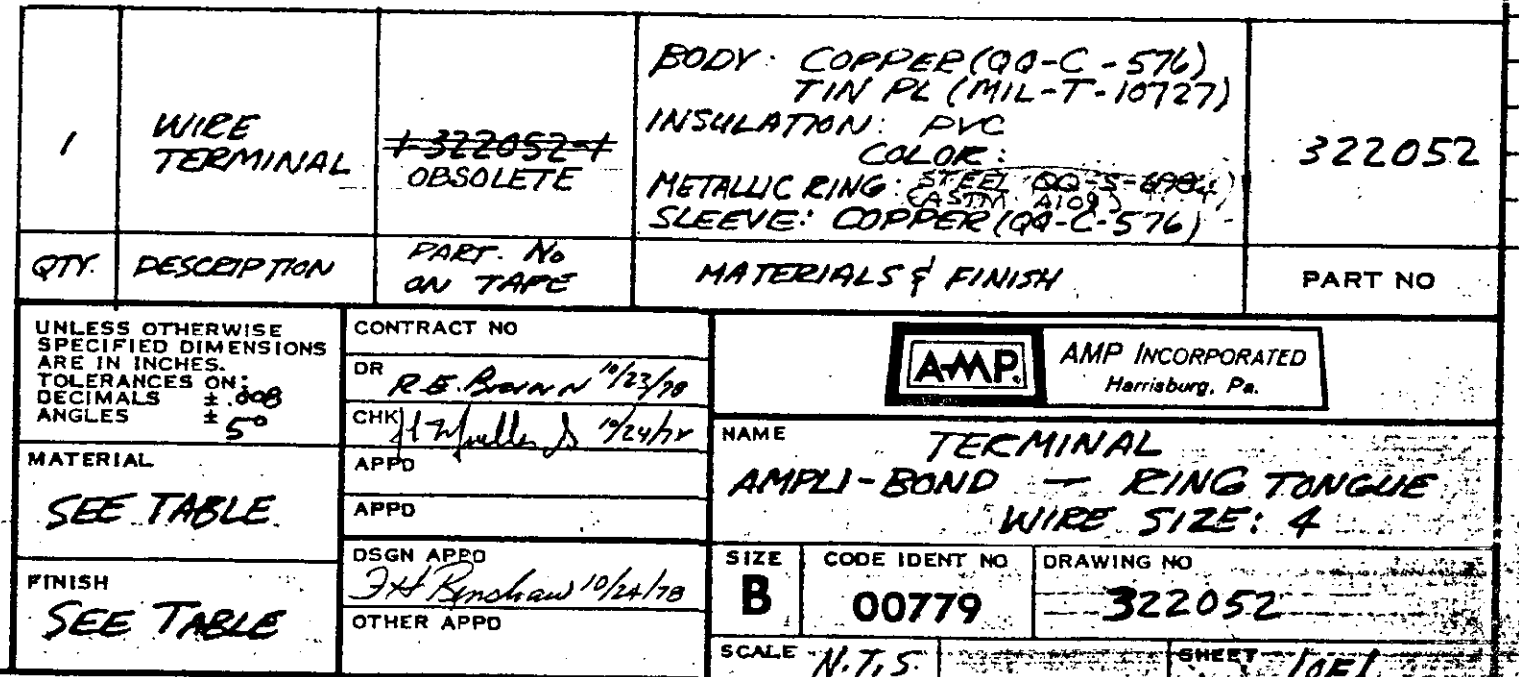 1
WIRE
TERMINAL
1-322052-1
OBSOLETE
BODY: COPPER (QQ-C-576)
TIN PL (MIL-T-10727)
INSULATION: PVC
COLOR:
METALLIC RING: STEEL QQ-S-698
(ASTM A109)
SLEEVE: COPPER (QQ-C-576)
322052
QTY.
DESCRIPTION
PART. No
ON TAPE
MATERIALS & FINISH
PART NO
UNLESS OTHERWISE
SPECIFIED DIMENSIONS
ARE IN INCHES.
TOLERANCES ON:
DECIMALS ±.008
ANGLES ±5°
MATERIAL
SEE TABLE
FINISH
SEE TABLE
CONTRACT NO
DR
10/23/78
CHK
10/24/78
APPD
APPD
DSGN APPD
10/24/78
OTHER APPD
AMP
AMP INCORPORATED
Harrisburg, Pa.
NAME
TERMINAL
AMPLI-BOND — RING TONGUE
WIRE SIZE: 4
SIZE
B
CODE IDENT NO
00779
DRAWING NO
322052
SCALE N.T.S.
SHEET 1 OF 1